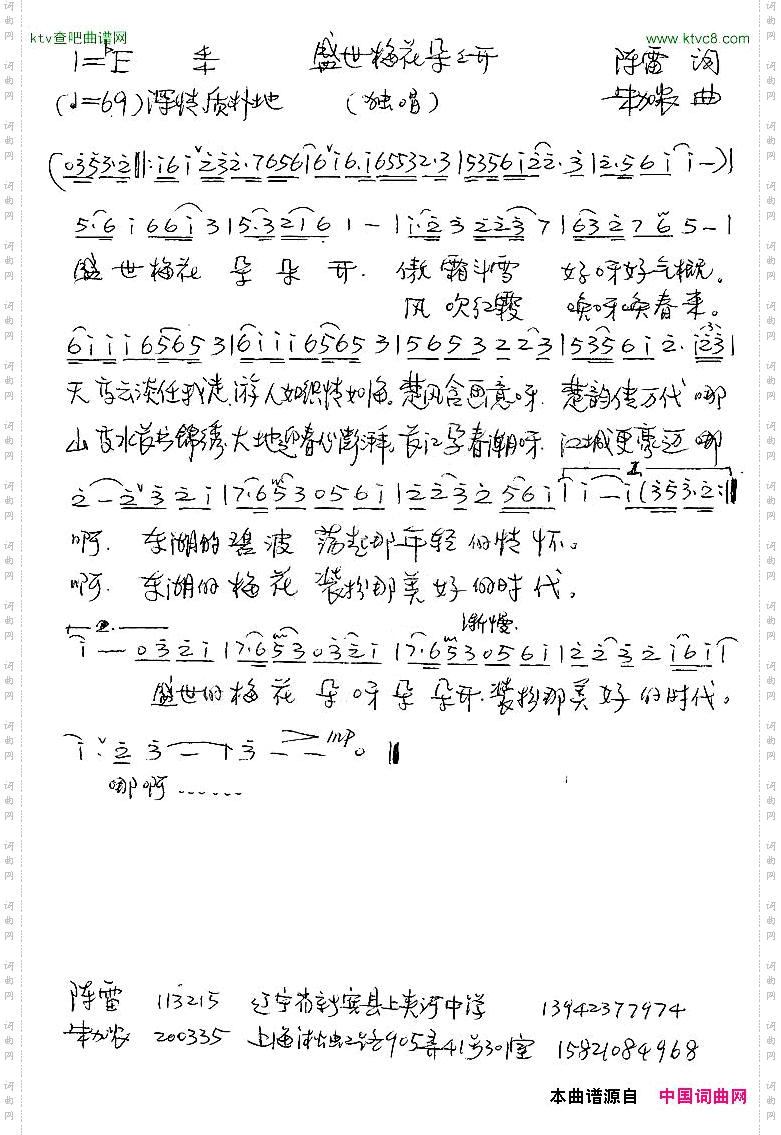 ktv查吧曲谱网
www.ktvc8.com
1=♭E 盛世梅花朵朵开 陈雷 词
(♩=69)深情质朴地 (独唱) 曲
(0353·2‖:i6i 232·7656|6i6·i65532·3|5356i22·3|2·56i i–)|
5·6 i66i 3|5·321 6 1 –|i·2 3 223 7|632 7 6 5–|
盛世梅花 朵朵开. 傲霜斗雪 好呀好气概。
风吹红霞 唤呀唤春来。
6iii6565 3|6iii6565 3|5653 223|5356i2·i23|
天高云淡任我走,游人如织情如海。楚风含画意呀. 楚韵传万代哪
山高水长书锦绣,大地迎春心澎湃,长江孕春潮呀. 江城更豪迈哪
2–2 32i|7·653056i|22 32 56i|i–i(353·2:‖
啊. 东湖的碧波 荡起那年轻的情怀。
啊. 东湖的梅花 装扮那美好的时代。
渐慢.
i––032i|7·65303 2i|7·653056i|22 32 i6i|
盛世的梅花朵呀朵朵开.装扮那美好的时代。
i· 2 3 – | 3 – – 0 ‖ mp
哪啊……
陈雷 113215 辽宁省新宾县上夹河中学 13942377974
200335 上海 905弄41号301室 15821084968
本曲谱源自 中国词曲网